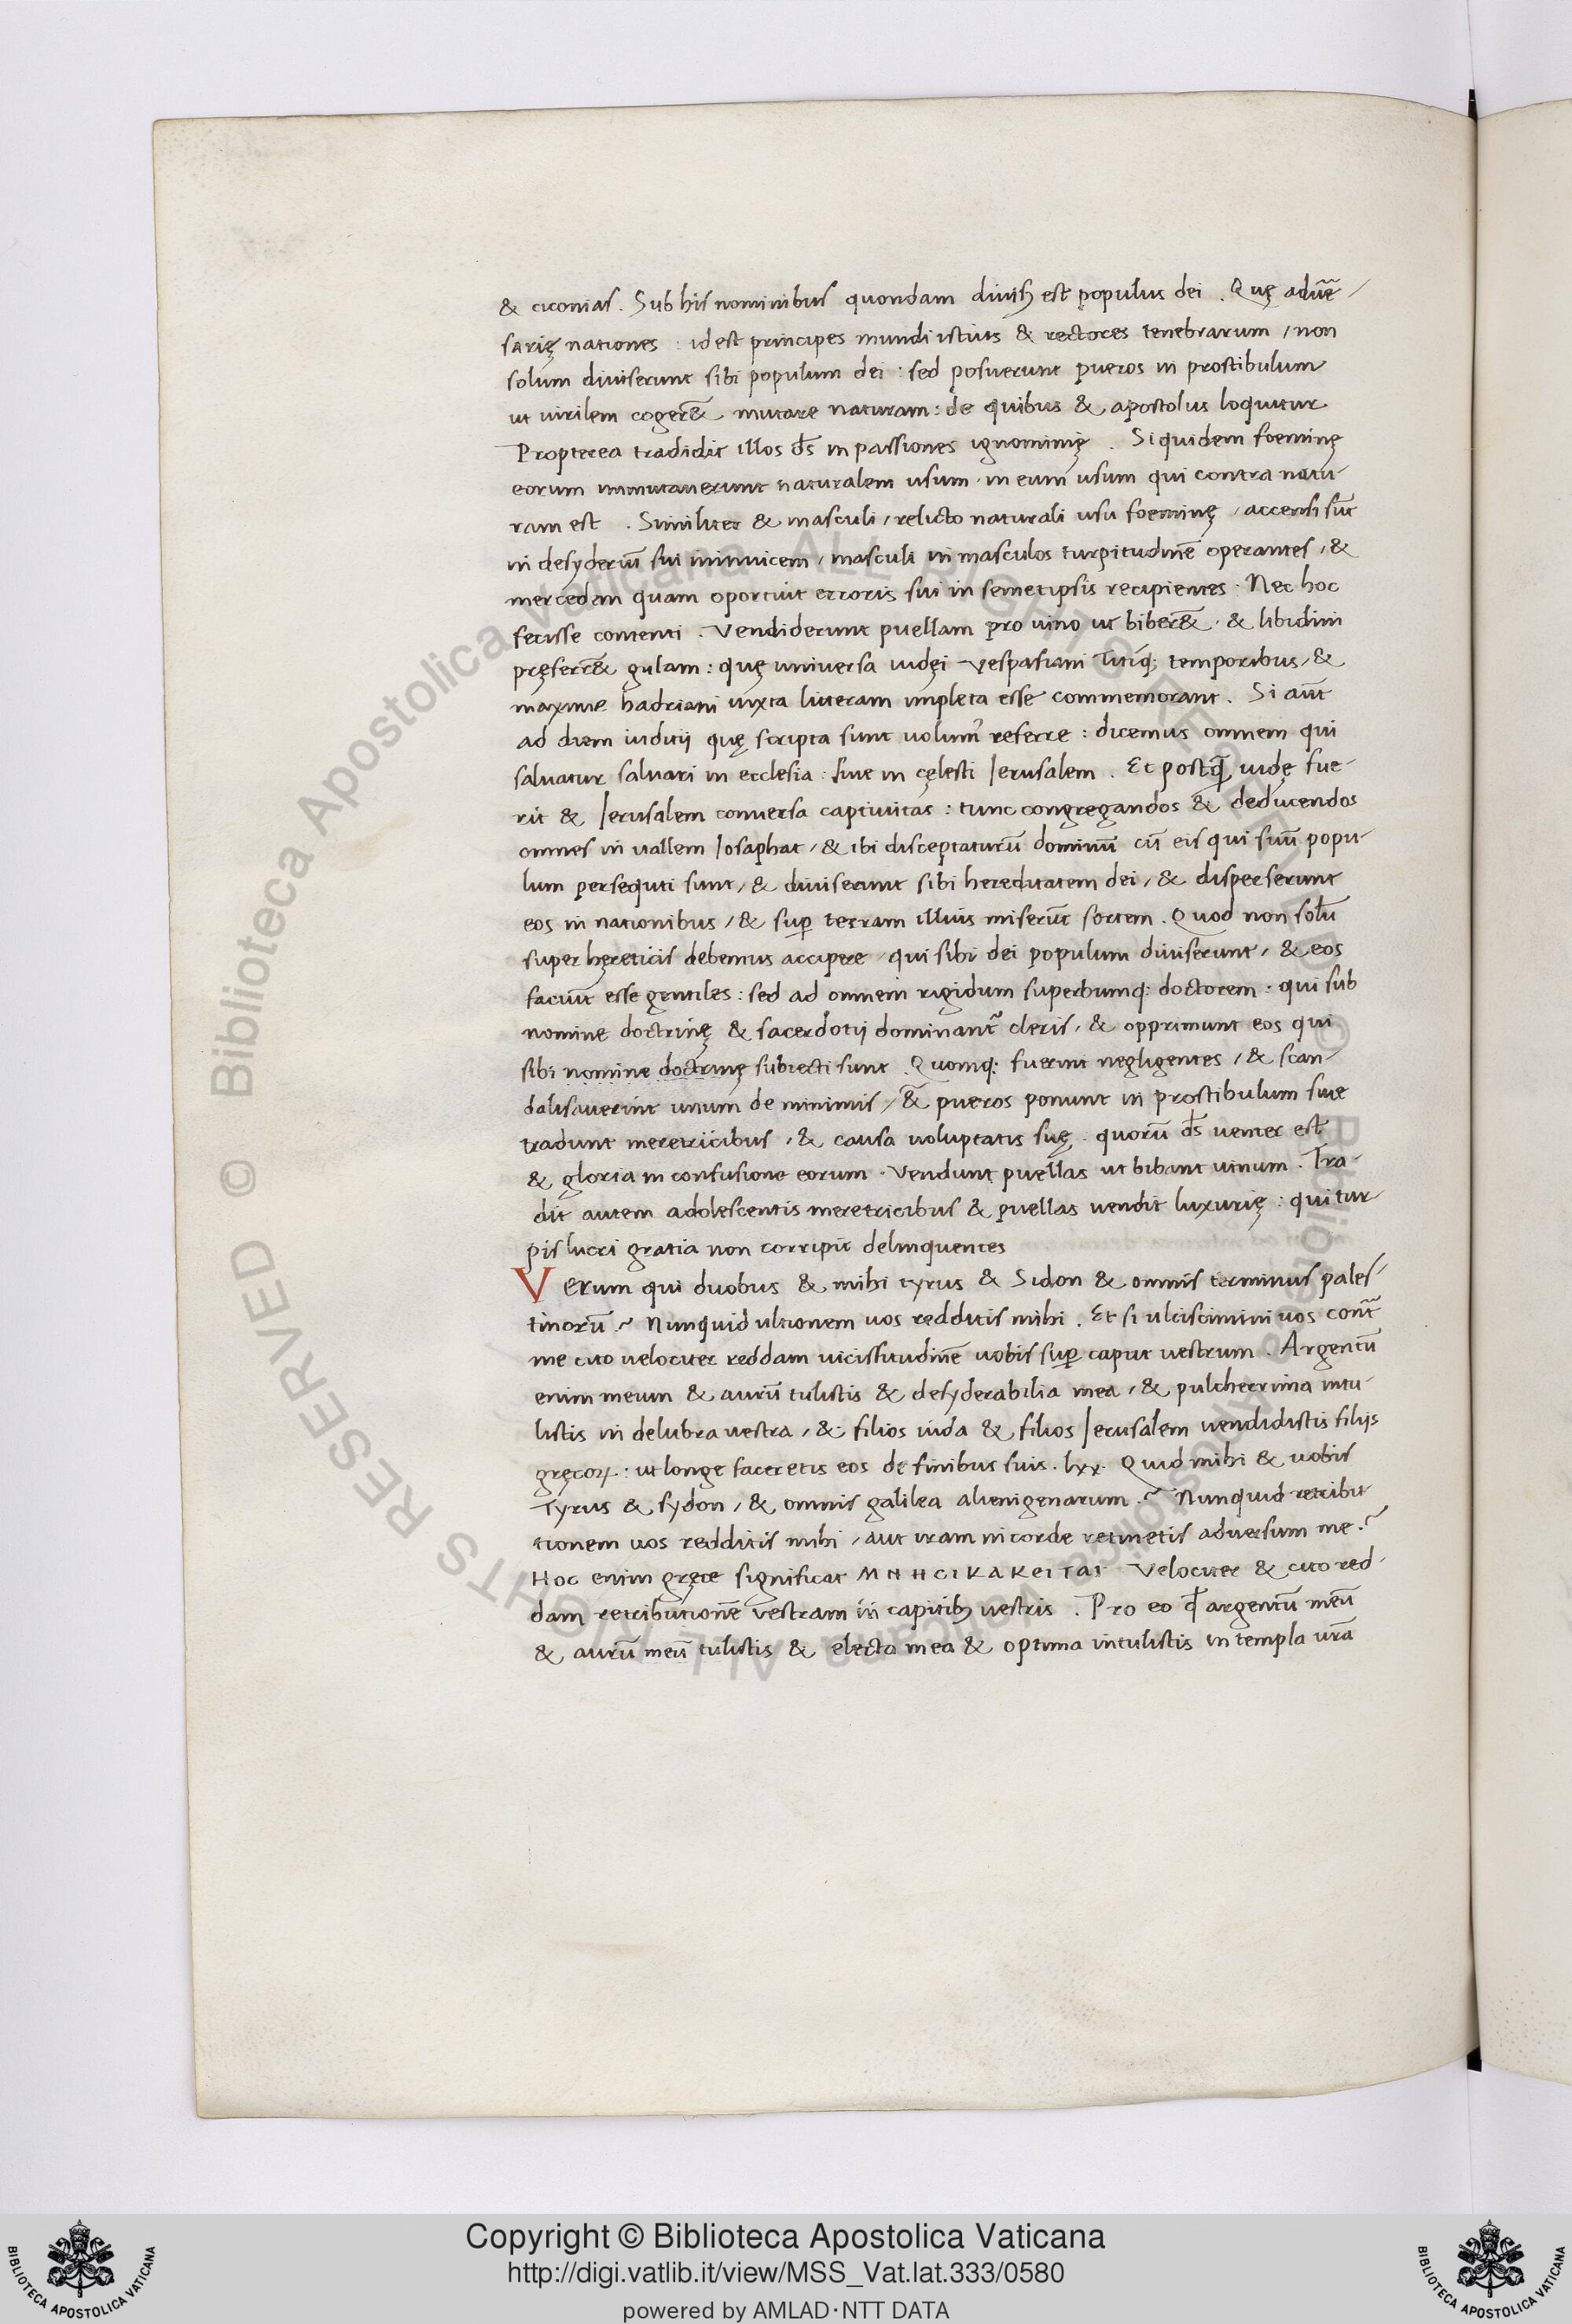 & ciconias. Sub his nominibus quondam diuisꝫ est populus dei. Quę aduẽ-
sarię nationes: id est principes mundi istius & rectores tenebrarum / non
solum diuiserunt sibi populum dei: sed posuerunt pueros in prostibulum
ut uirilem coger& mutare naturam: de quibus & apostolus loquitur
Propterea tradidit illos d̃s in passiones ignominię. Siquidem foeminę
eorum immutauerunt naturalem usum in eum usum qui contra natu-
ram est. Similiter & masculi / relicto naturali usu foeminę / accensi sũt
in desyderiũ sui inuicem / masculi in masculos turpitudinẽ operantes / &
mercedem quam oportuit erroris sui in semetipsis recipientes. Nec hoc
fecisse contenti. Vendiderunt puellam pro uino ut biber&̃ & libidini
pręferr& gulam: quę uniuersa iudęi Vespasiani Titiq; temporibus / &
maxime hadriani iuxta litteram impleta esse commemorant. Si aũt
ad diem iuditij quę scripta sunt uolum᾽ referre: dicemus omnem qui
saluatur saluari in ecclesia: siue in cęlesti Ierusalem. Et postq̃ iudę fue-
rit & Ierusalem conuersa captiuitas: tunc congregandos & deducendos
omnes in uallem Iosaphat / & ibi disceptaturũ dominũ cũ eis qui suũ popu-
lum persequti sunt / & diuiserunt sibi hereditatem dei / & disperserunt
eos in nationibus / & suꝑ terram illius miserũt sortem. Quod non solũ
super hęreticis debemus accipere qui sibi dei populum diuiserunt / & eos
faciũt esse gentiles: sed ad omnem rigidum superbumq; doctorem: qui sub
nomine doctrinę & sacerdotij dominant᷑ cleris / & opprimunt eos qui
sibi nomine doctrinę subiecti sunt. Quomq; fuerint negligentes / & scan-
dalisauerint unum de minimis / & pueros ponunt in prostibulum siue
tradunt meretricibus / & causa uoluptatis suę. quorũ d̃s uenter est
& gloria in confusione eorum. Vendunt puellas ut bibant uinum. Tra-
dit autem adolescentis meretricibus & puellas uendit luxurię: qui tur-
pis lucri gratia non corripit delinquentes
Verum qui duobus & mihi tyrus & Sidon & omnis terminus pales-
tinorũ? Nunquid ultionem uos redditis mihi. Et si ulciscimini uos cont᷑
me cito uelociter reddam uicissitudinẽ uobis suꝑ caput uestrum. Argentũ
enim meum & aurũ tulistis & desyderabilia mea / & pulcherrima intu-
listis in delubra uestra / & filios iuda & filios Ierusalem uendidistis filijs
gręcoꝝ: ut longe faceretis eos de finibus suis. lxx. Quid mihi & uobis
Tyrus & sydon / & omnis galilea alienigenarum? Nunquid retribu-
tionem uos redditis mihi / aut iram in corde retinetis aduersum me?
Hoc enim gręce significat ΜΝΗCΙΚΑΚΕΙΤΑΙ Velociter & cito red-
dam retributionẽ vestram in capitibꝫ uestris. Pro eo q̃ argentũ meũ
& aurũ meũ tulistis & electa mea & optima intulistis in templa ur̃a
© Biblioteca Apostolica Vaticana ALL RIGHTS RESERVED © Biblioteca Apostolica Vaticana ALL RIGHTS RESERVED
BIBLIOTECA APOSTOLICA VATICANA
Copyright © Biblioteca Apostolica Vaticana
http://digi.vatlib.it/view/MSS_Vat.lat.333/0580
powered by AMLAD·NTT DATA
BIBLIOTECA APOSTOLICA VATICANA